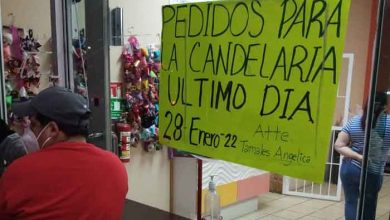 PEDIDOS PARA
LA CANDELARIA
ULTIMO DIA
28 Enero 22 Atte.
Tamales Angelica